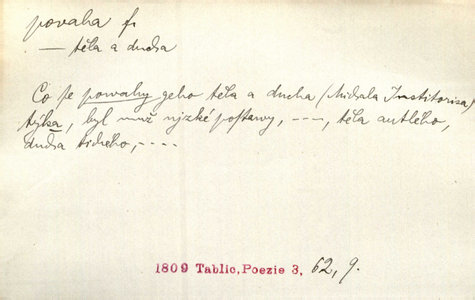 povaha f.
— těla a ducha
Co se powahy geho těla a ducha (Michala Institorisa)
týká, byl muž njzké postawy, ----, těla autlého,
ducha tichého, ----
1809 Tablic, Poezie 3, 62, 9.